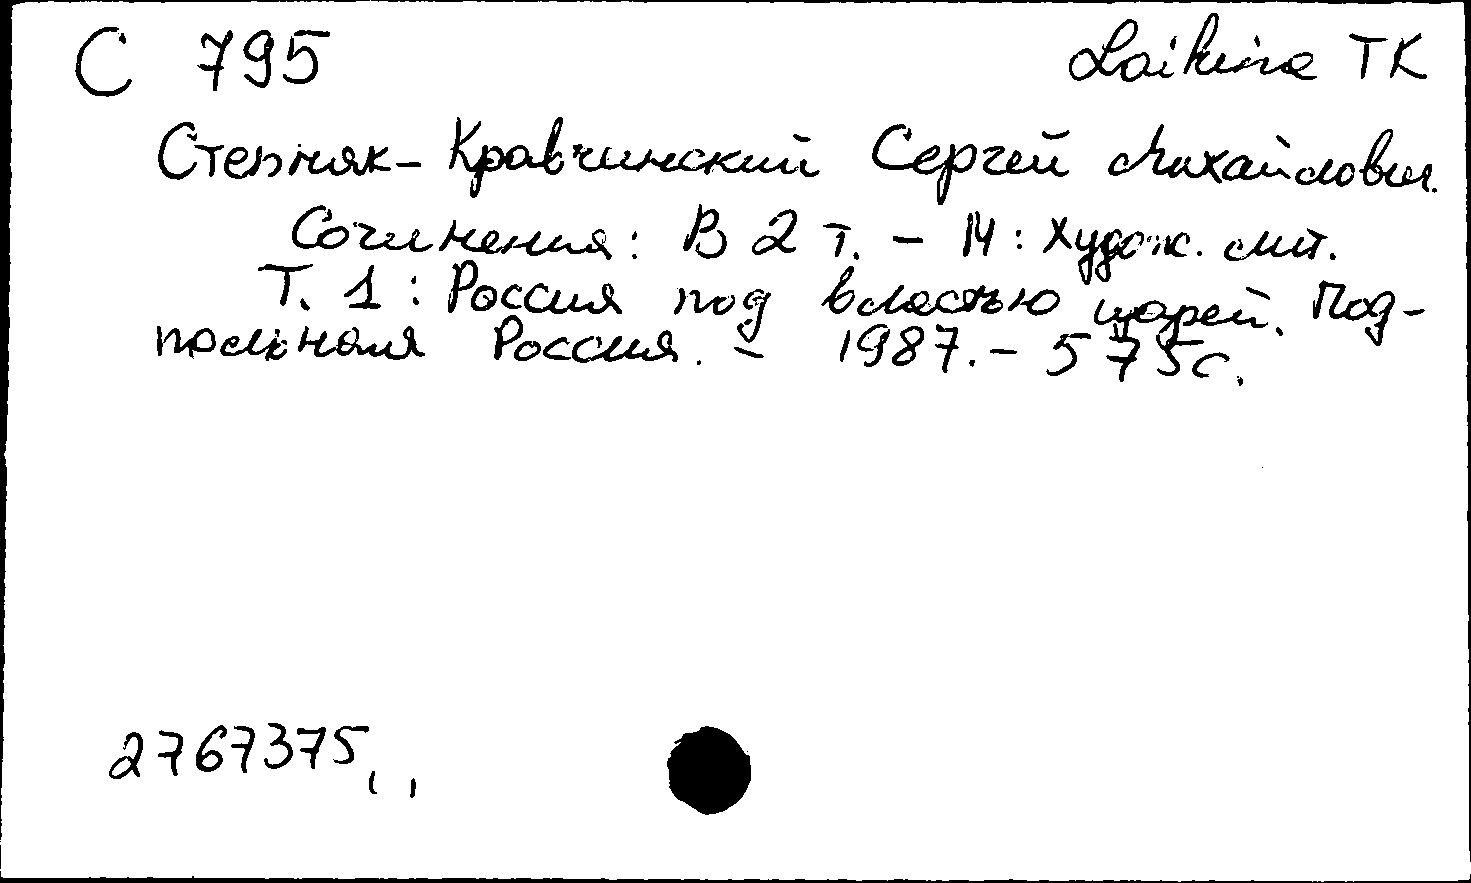 С 795 Laikina ТК
Степняк-Кравчинский Сергей Михайлович.
Сочинения: В 2 т. – М: Худож. лит.
Т. 1: Россия под властью царей. Под-
польная Россия. – 1987. – 575с.
2767375,,